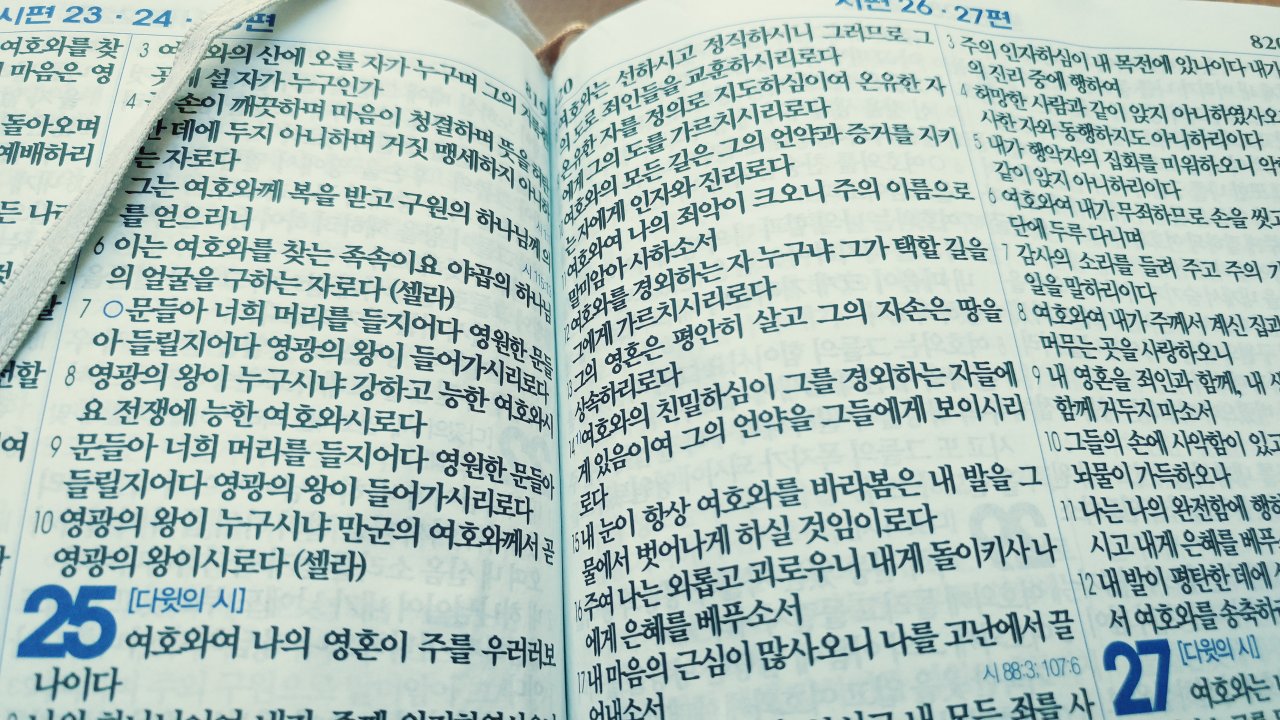 시편 23 · 24 ·
여호와를 찾
마음은 영
돌아오며
예배하리
3 와의 산에 오를 자가 누구며 그의
설 자가 누구인가
4 손이 깨끗하며 마음이 청결하며 뜻을
데에 두지 아니하며 거짓 맹세하지
는 자로다
그는 여호와께 복을 받고 구원의 하나님께
를 얻으리니
6 이는 여호와를 찾는 족속이요 야곱의 하나님
의 얼굴을 구하는 자로다 (셀라)
7 ○문들아 너희 머리를 들지어다 영원한 문들
아 들릴지어다 영광의 왕이 들어가시리로다
8 영광의 왕이 누구시냐 강하고 능한 여호와시
요 전쟁에 능한 여호와시로다
9 문들아 너희 머리를 들지어다 영원한 문들아
들릴지어다 영광의 왕이 들어가시리로다
10 영광의 왕이 누구시냐 만군의 여호와께서 곧
영광의 왕이시로다 (셀라)
25 [다윗의 시]
여호와여 나의 영혼이 주를 우러러보
나이다
여호와는 선하시고 정직하시니 그러므로 그
의 도로 죄인들을 교훈하시리로다
온유한 자를 정의로 지도하심이여 온유한 자
에게 그의 도를 가르치시리로다
여호와의 모든 길은 그의 언약과 증거를 지키
는 자에게 인자와 진리로다
여호와여 나의 죄악이 크오니 주의 이름으로
말미암아 사하소서
여호와를 경외하는 자 누구냐 그가 택할 길을
그에게 가르치시리로다
13 그의 영혼은 평안히 살고 그의 자손은 땅을
상속하리로다
14 여호와의 친밀하심이 그를 경외하는 자들에
게 있음이여 그의 언약을 그들에게 보이시리
로다
15 내 눈이 항상 여호와를 바라봄은 내 발을 그
물에서 벗어나게 하실 것임이로다
16 주여 나는 외롭고 괴로우니 내게 돌이키사 나
에게 은혜를 베푸소서
17 내 마음의 근심이 많사오니 나를 고난에서 끌
어내소서
시 88:3; 107:6
내 모든 죄를 사
시편 26 · 27편
820
3 주의 인자하심이 내 목전에 있나이다 내가
의 진리 중에 행하여
4 허망한 사람과 같이 앉지 아니하였사오
사한 자와 동행하지도 아니하리이다
5 내가 행악자의 집회를 미워하오니 악
같이 앉지 아니하리이다
6 여호와여 내가 무죄하므로 손을 씻고
단에 두루 다니며
7 감사의 소리를 들려 주고 주의 기
일을 말하리이다
8 여호와여 내가 주께서 계신 집과
머무는 곳을 사랑하오니
9 내 영혼을 죄인과 함께, 내 생
함께 거두지 마소서
10 그들의 손에 사악함이 있고
뇌물이 가득하오나
11 나는 나의 완전함에 행하
시고 내게 은혜를 베푸
12 내 발이 평탄한 데에 서
서 여호와를 송축하
27 [다윗의 시]
여호와는